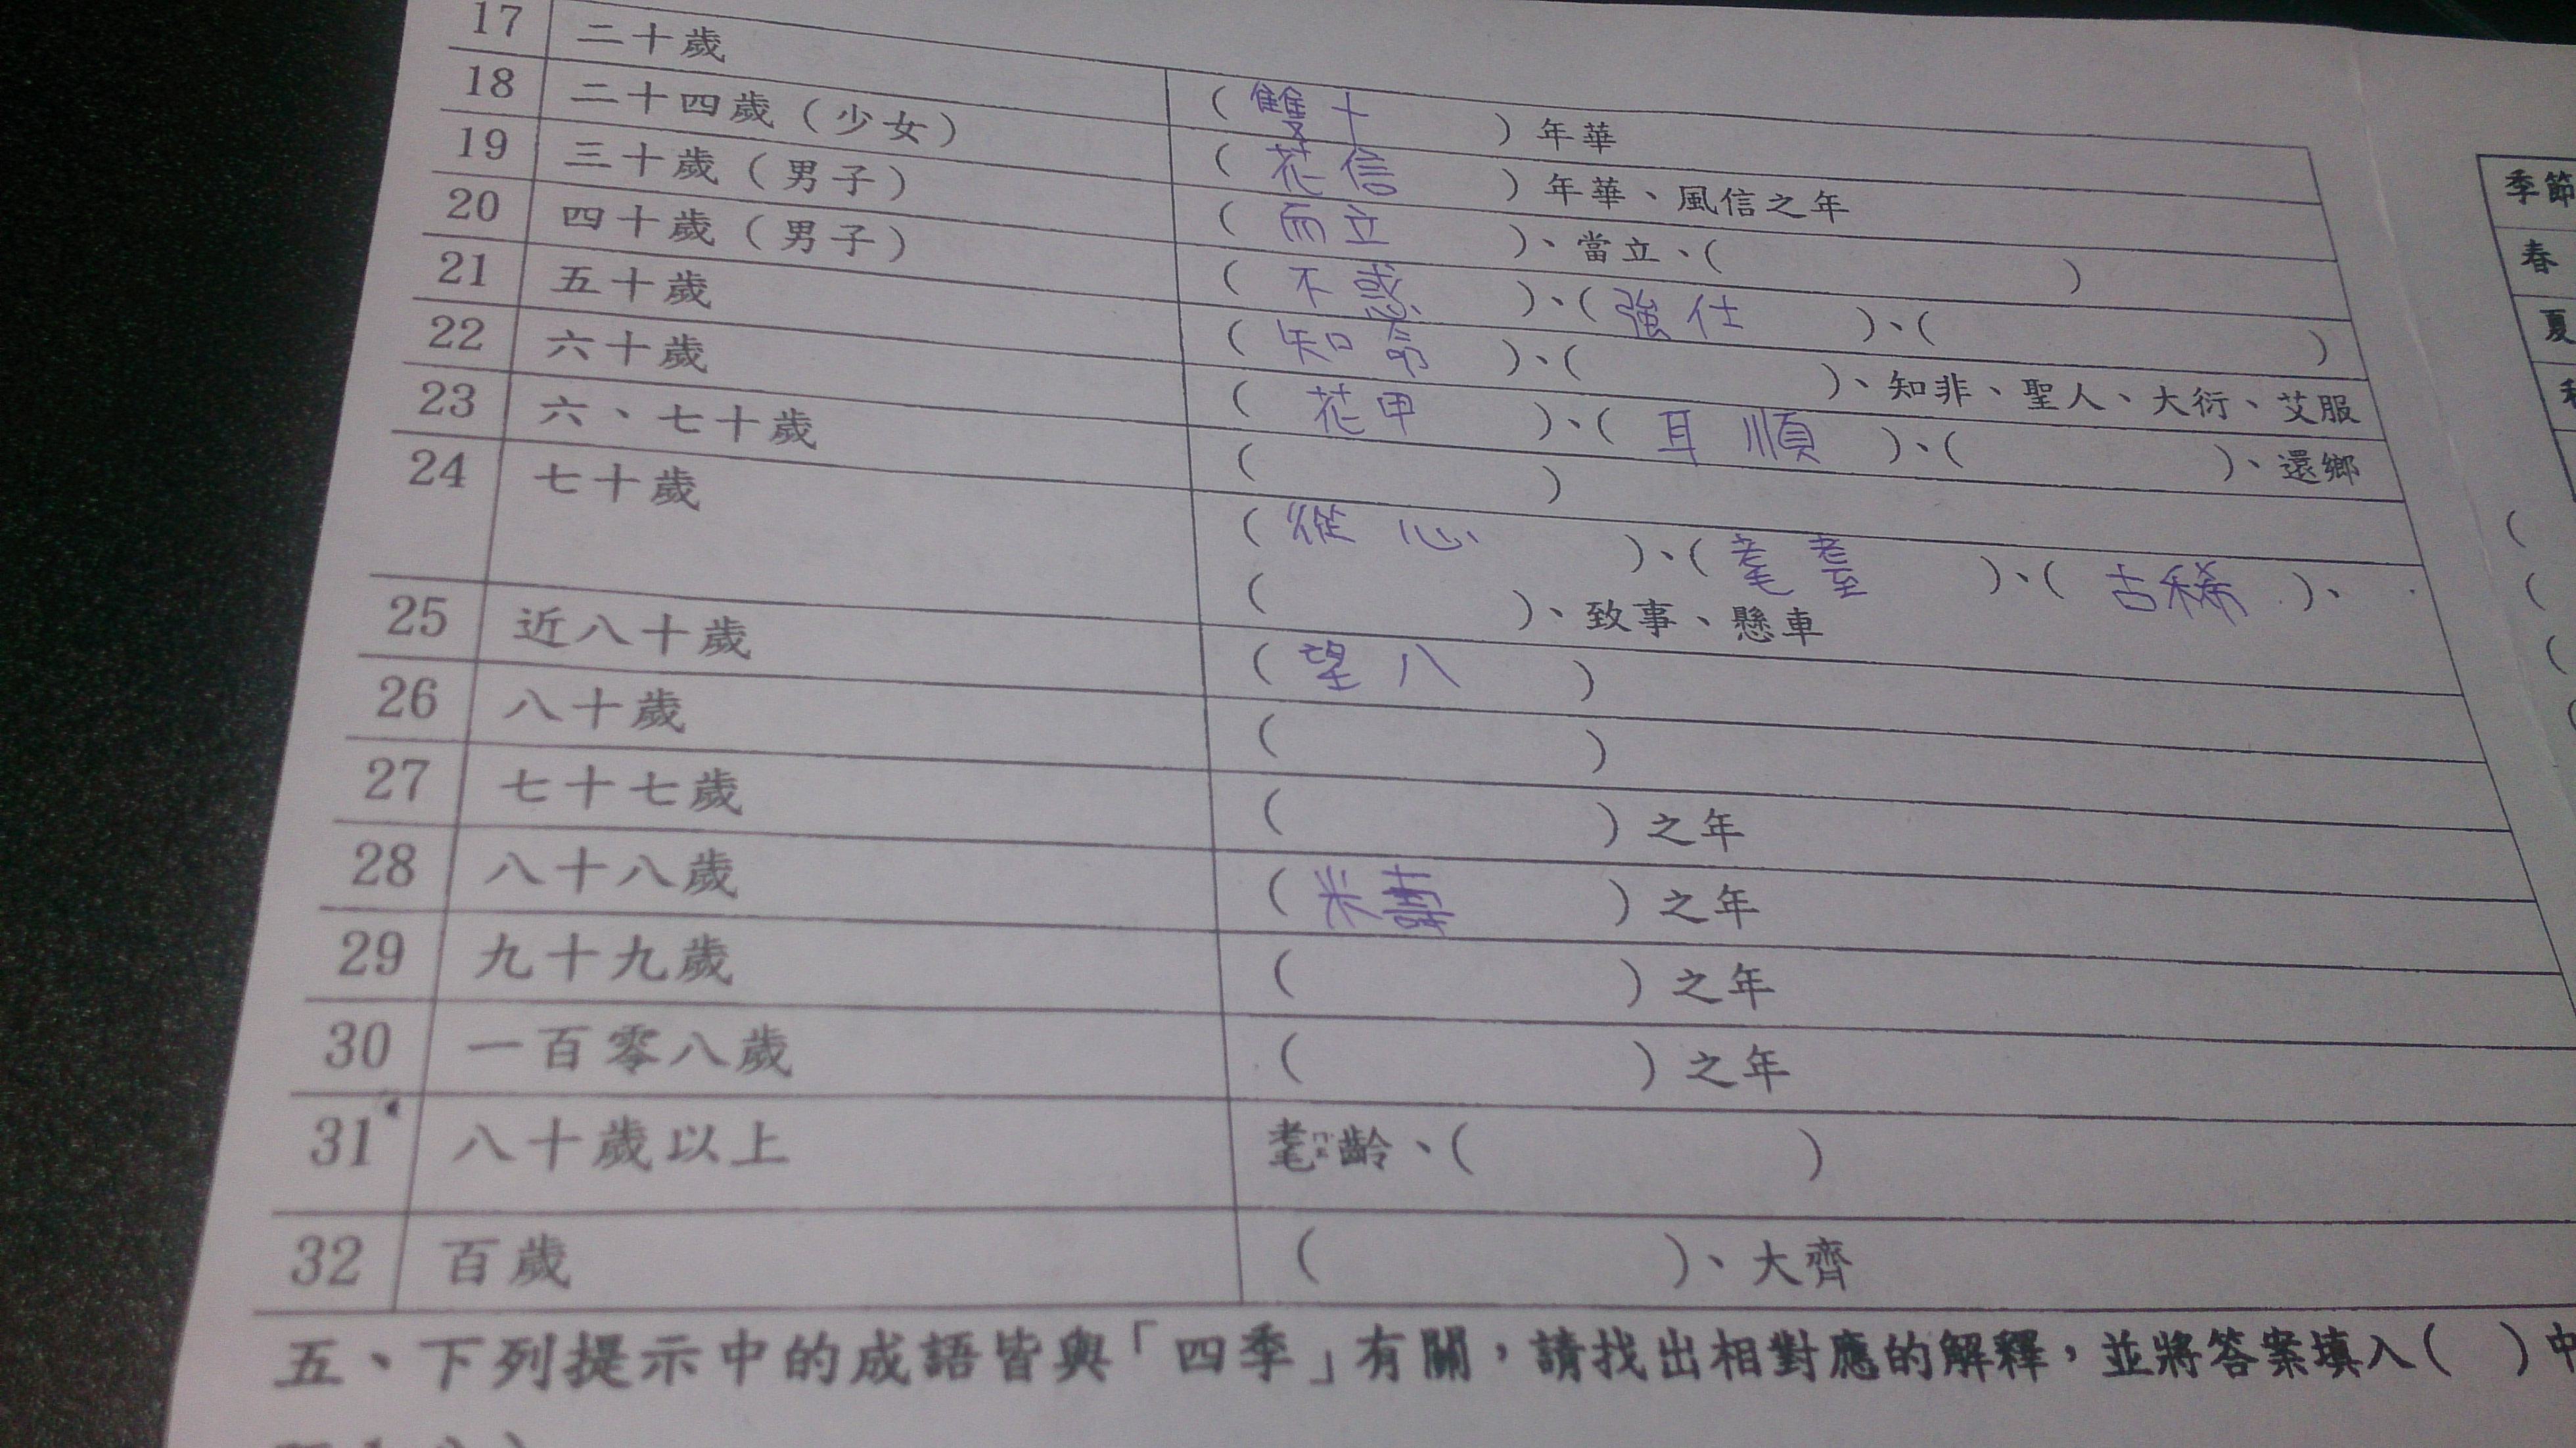 17 二十歲 (雙十)年華
18 二十四歲(少女) (花信)年華、風信之年
19 三十歲(男子) (而立)、當立、( )
20 四十歲(男子) (不惑)、(強仕)、( )
21 五十歲 (知命)、( )、知非、聖人、大衍、艾服
22 六十歲 (花甲)、(耳順)、( )、還鄉
23 六、七十歲 ( )
24 七十歲 (從心)、(耄耋)、(古稀)、
( )、致事、懸車
25 近八十歲 (望八)
26 八十歲 ( )
27 七十七歲 ( )之年
28 八十八歲 (米壽)之年
29 九十九歲 ( )之年
30 一百零八歲 ( )之年
31 八十歲以上 耄齡、( )
32 百歲 ( )、大齊
五、下列提示中的成語皆與「四季」有關，請找出相對應的解釋，並將答案填入( )中
季節
春
夏